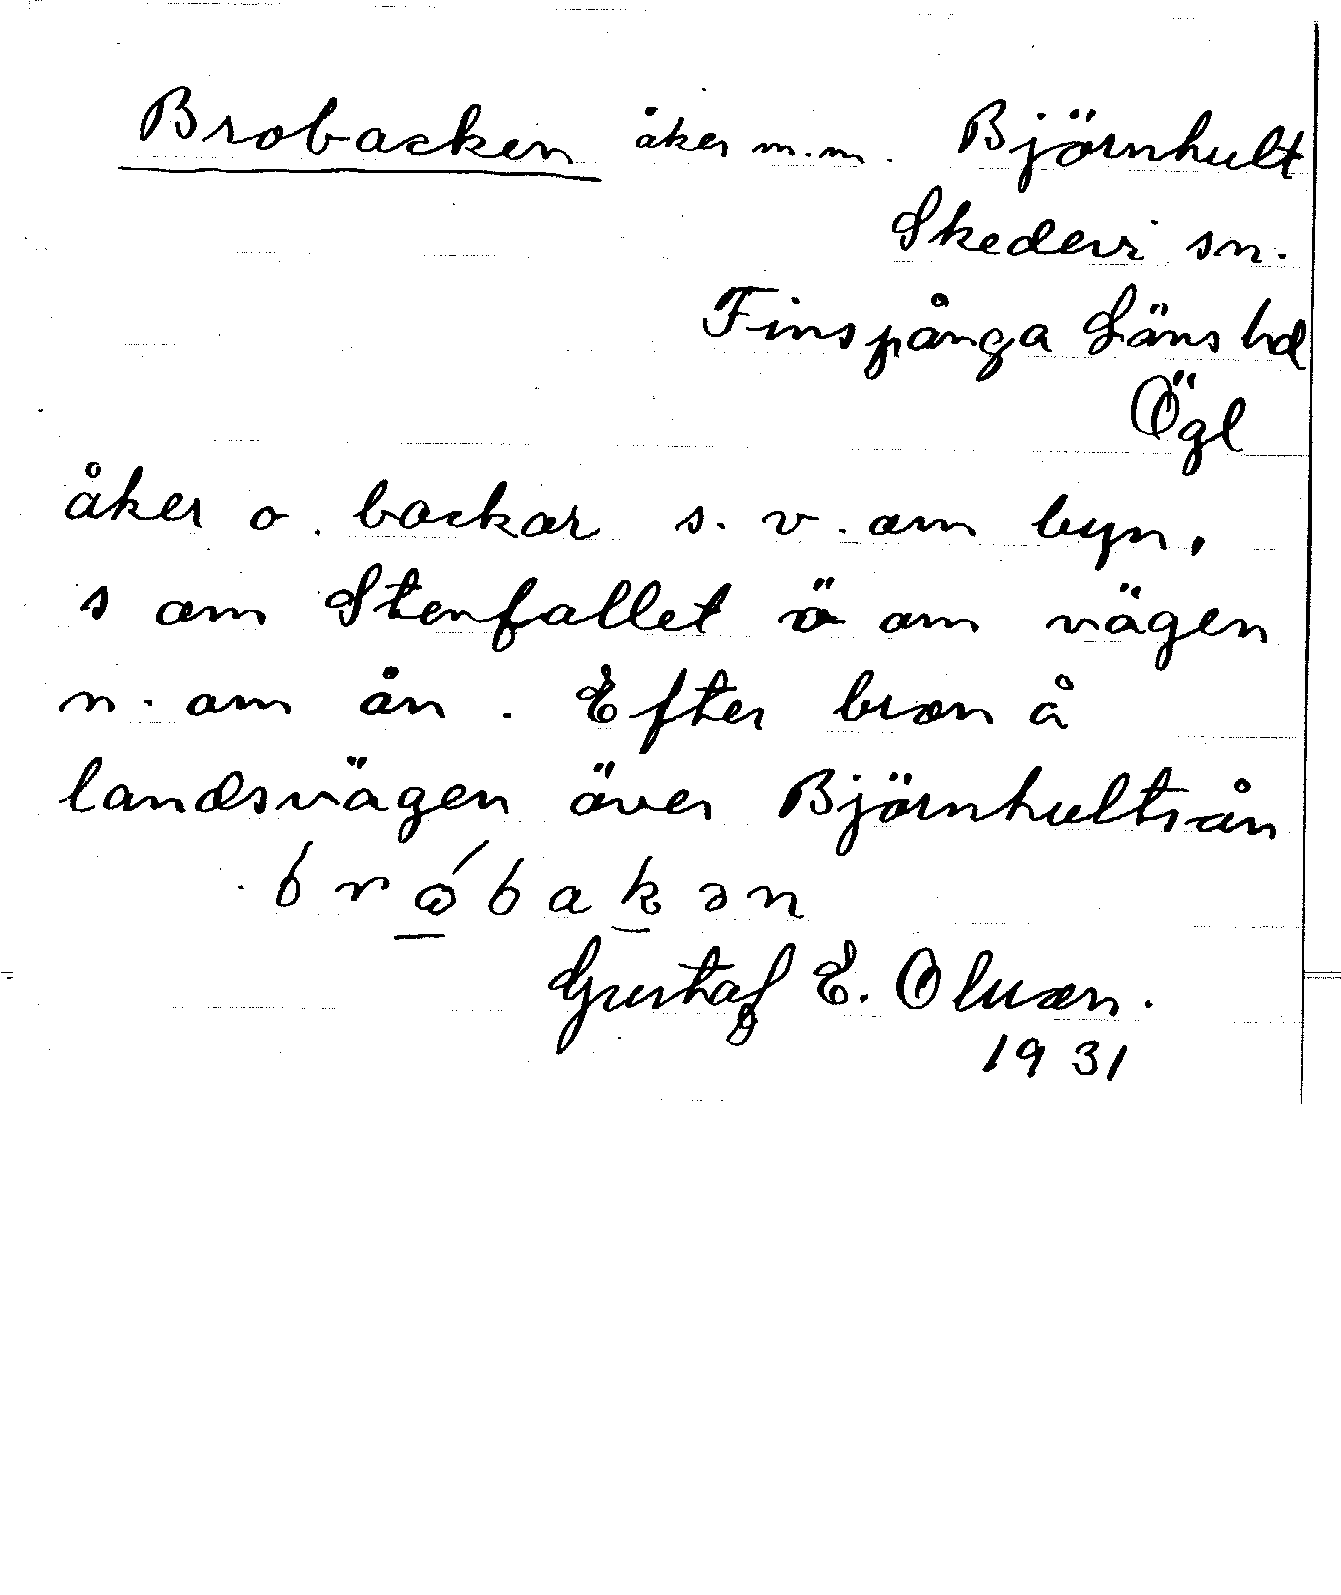 Brobacken åker m.m. Björnhult
Skedevi sn.
Finspånga Läns hd
Ögl
åker o. backar s.v. om byn,
s om Stenfallet ö om vägen
n. om ån. Efter bron å
landsvägen över Björnhultsån
bròbakən
Gustaf E. Olsson.
1931